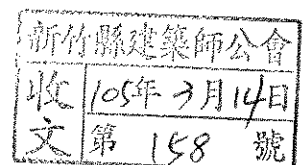 新竹縣建築師公會
收文
105年3月14日
第 158 號